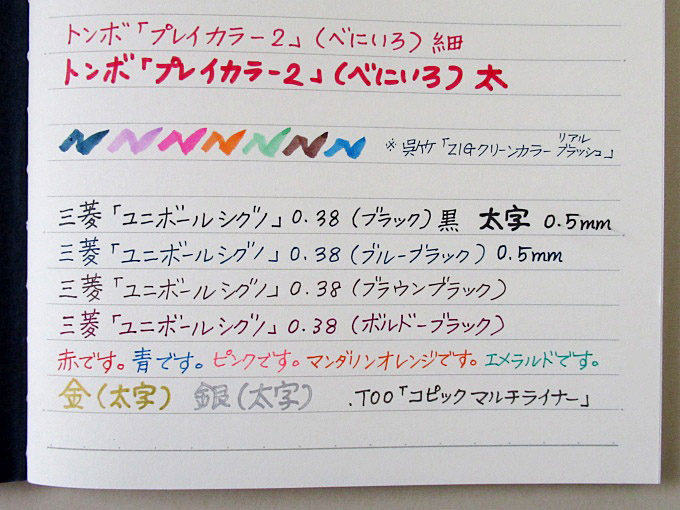 トンボ「プレイカラー2」(べにいろ) 細
トンボ「プレイカラー2」(べにいろ) 太
※呉竹「ZIGクリーンカラー リアルブラッシュ」
三菱「ユニボールシグノ」0.38 (ブラック) 黒 太字 0.5mm
三菱「ユニボールシグノ」0.38 (ブルーブラック) 0.5mm
三菱「ユニボールシグノ」0.38 (ブラウンブラック)
三菱「ユニボールシグノ」0.38 (ボルドーブラック)
赤です。青です。ピンクです。マンダリンオレンジです。エメラルドです。
金(太字) 銀(太字) .TOO「コピックマルチライナー」